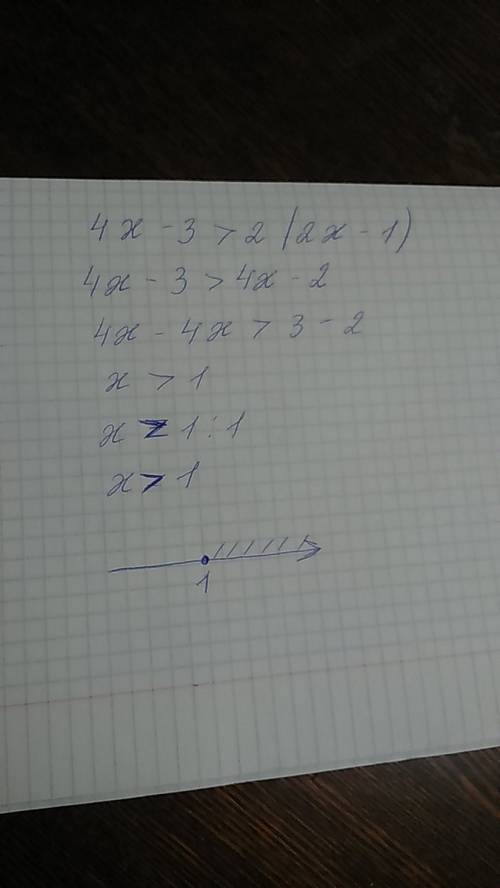 4x - 3 > 2 (2x - 1)
4x - 3 > 4x - 2
4x - 4x > 3 - 2
x > 1
x > 1 : 1
x > 1
1